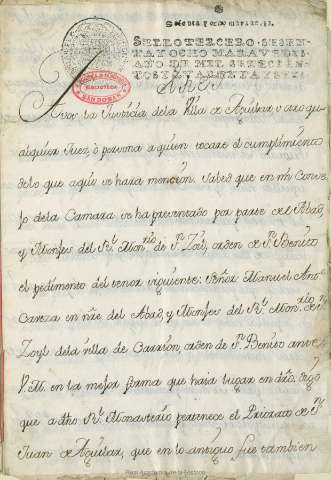 Sesenta y ocho maravedis.
SELLO TERCERO, SESEN
TA Y OCHO MARAVEDIS,
AÑO DE MIL SETECIEN
TOS Y
BIBLIOTECA
A vos la Justicia de la Villa de Aguilar u otro qual
alquier Juez, ò persona a quien tocare el cumplimiento
de lo que aqui se hara mencion. Sabed que en mi Conse
jo de la Camara se ha presentado por parte del Abad
y Monjes del Rl. Monrio. de Sn. Zoil, orden de Sn. Benito
el pedimento del tenor siguiente: Señor Manuel Anto
Careza en nre. del Abad, y Monjes del Rl. Monrio. de Sn.
Zoyl de la villa de Carrion, orden de Sn. Benito ante
V. M. en la mejor forma que haia lugar en dro. digo
que a dho Rl. Monasterio pertenece el Priorato de Sn.
Juan de Aguilar, que en lo antiguo fue tambien
Real Academia de la Historia